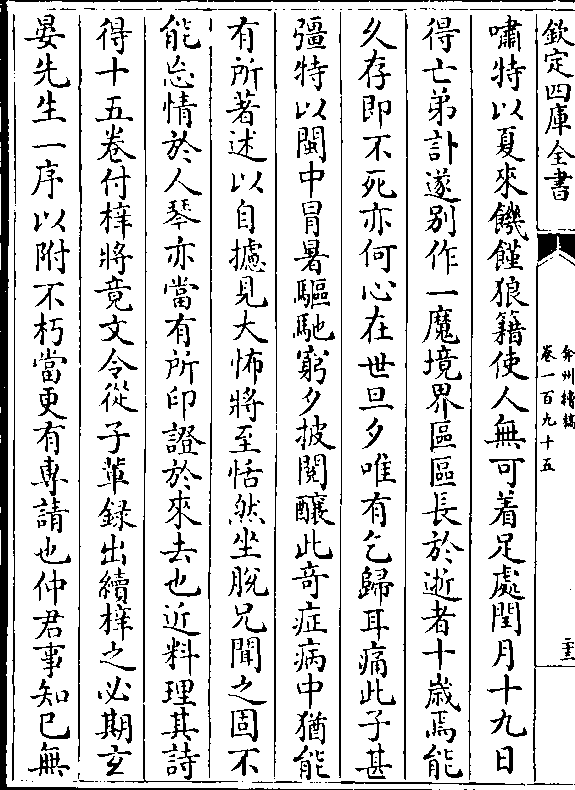 欽定四庫全書
弇州續稿
卷一百九十五
嘯特以夏來饑饉狼籍使人無可着足處閏月十九日
得亡弟訃遂别作一魔境界區區長於逝者十歲焉能
久存即不死亦何心在世旦夕唯有乞歸耳痛此子甚
彊特以閩中冒暑驅馳窮夕披閱釀此奇症病中猶能
有所著述以自攄見大怖將至恬然坐脫兄聞之固不
能忘情於人琴亦當有所印證於來去也近料理其詩
得十五卷付梓將竟文令從子輩録出續梓之必期玄
晏先生一序以附不朽當更有專請也仲君事知已無